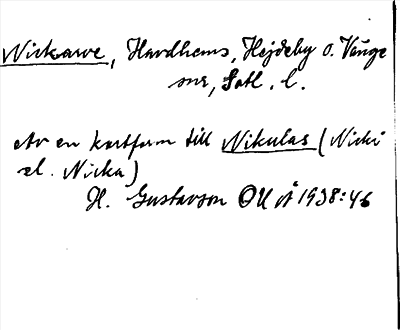 Nickarve, Havdhems, Hejdeby o. Vänge
snr, Gotl. l.
Av en kortform till Nikulas (Nicki
el. Nicka)
H. Gustavson OUÅ 1938:46